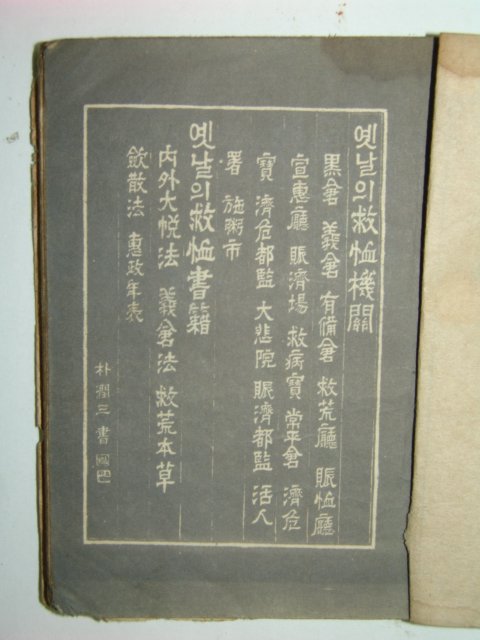 옛날의救恤機關
黑倉 義倉 有備倉 救荒廳 賑恤廳
宣惠廳 賑濟場 救病寶 常平倉 濟危
寶 濟危都監 大悲院 賑濟都監 活人
署 施粥市
옛날의救恤書籍
內外大悅法 義倉法 救荒本草
斂散法 惠政年表
朴潤三書